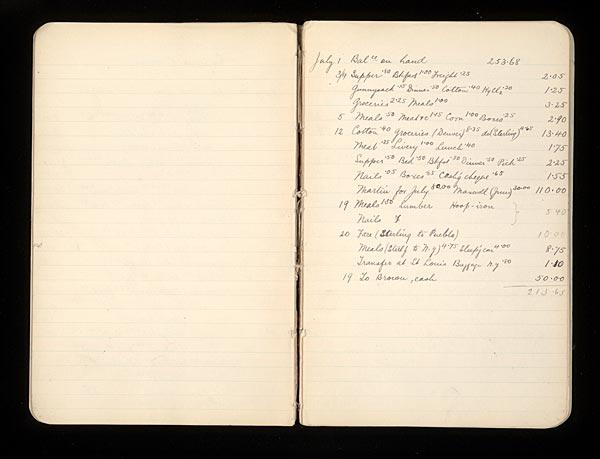 July 1 Bal ce on hand 253.68
3/4 Supper .50 Bkfast 1.00 Freight .25 2.05
Gunnysack .15 Dinner .50 Cotton .40 .20 1.25
Groceries 2.25 Meals 1.00 3.25
5 Meals .50 Meat &c 1.15 Corn 1.00 Boxes .25 2.90
12 Cotton .40 Groceries (Denver) 8.35 do (Sterling) 4.65 13.40
Meat .35 Livery 1.00 Lunch .40 1.75
Supper .50 Bed .50 Bkfst .50 Dinner .50 Pick .25 2.25
Nails .05 Boxes .85 cheque .65 1.55
Martin for July 80.00 Maxwell (June) 30.00 110.00
19 Meals 1.50 Lumber Hoop-iron
Nails & 5.40
20 Fare (Sterling to Pueblo) 10.00
Meals (Sterl'g to N.Y) 4.75 Sleep'g car 4.00 8.75
Transfer at St Louis Baggage N.Y .30 1.10
19 To Brown, cash 50.00
213.65